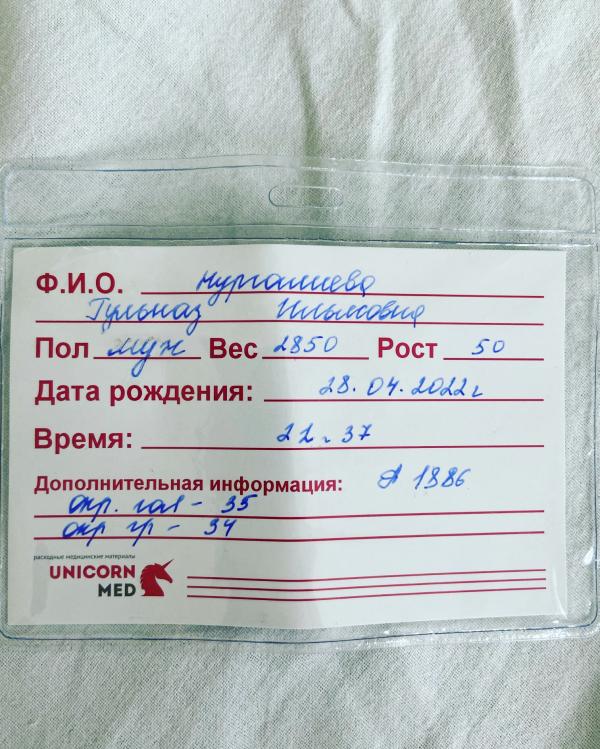 Ф.И.О. Нургалиева
Гульназ Ильисовна
Пол муж Вес 2850 Рост 50
Дата рождения: 28.04.2022г
Время: 22 ч 37
Дополнительная информация: 1886
окр. гол - 35
окр гр - 34
расходные медицинские материалы
UNICORN
MED